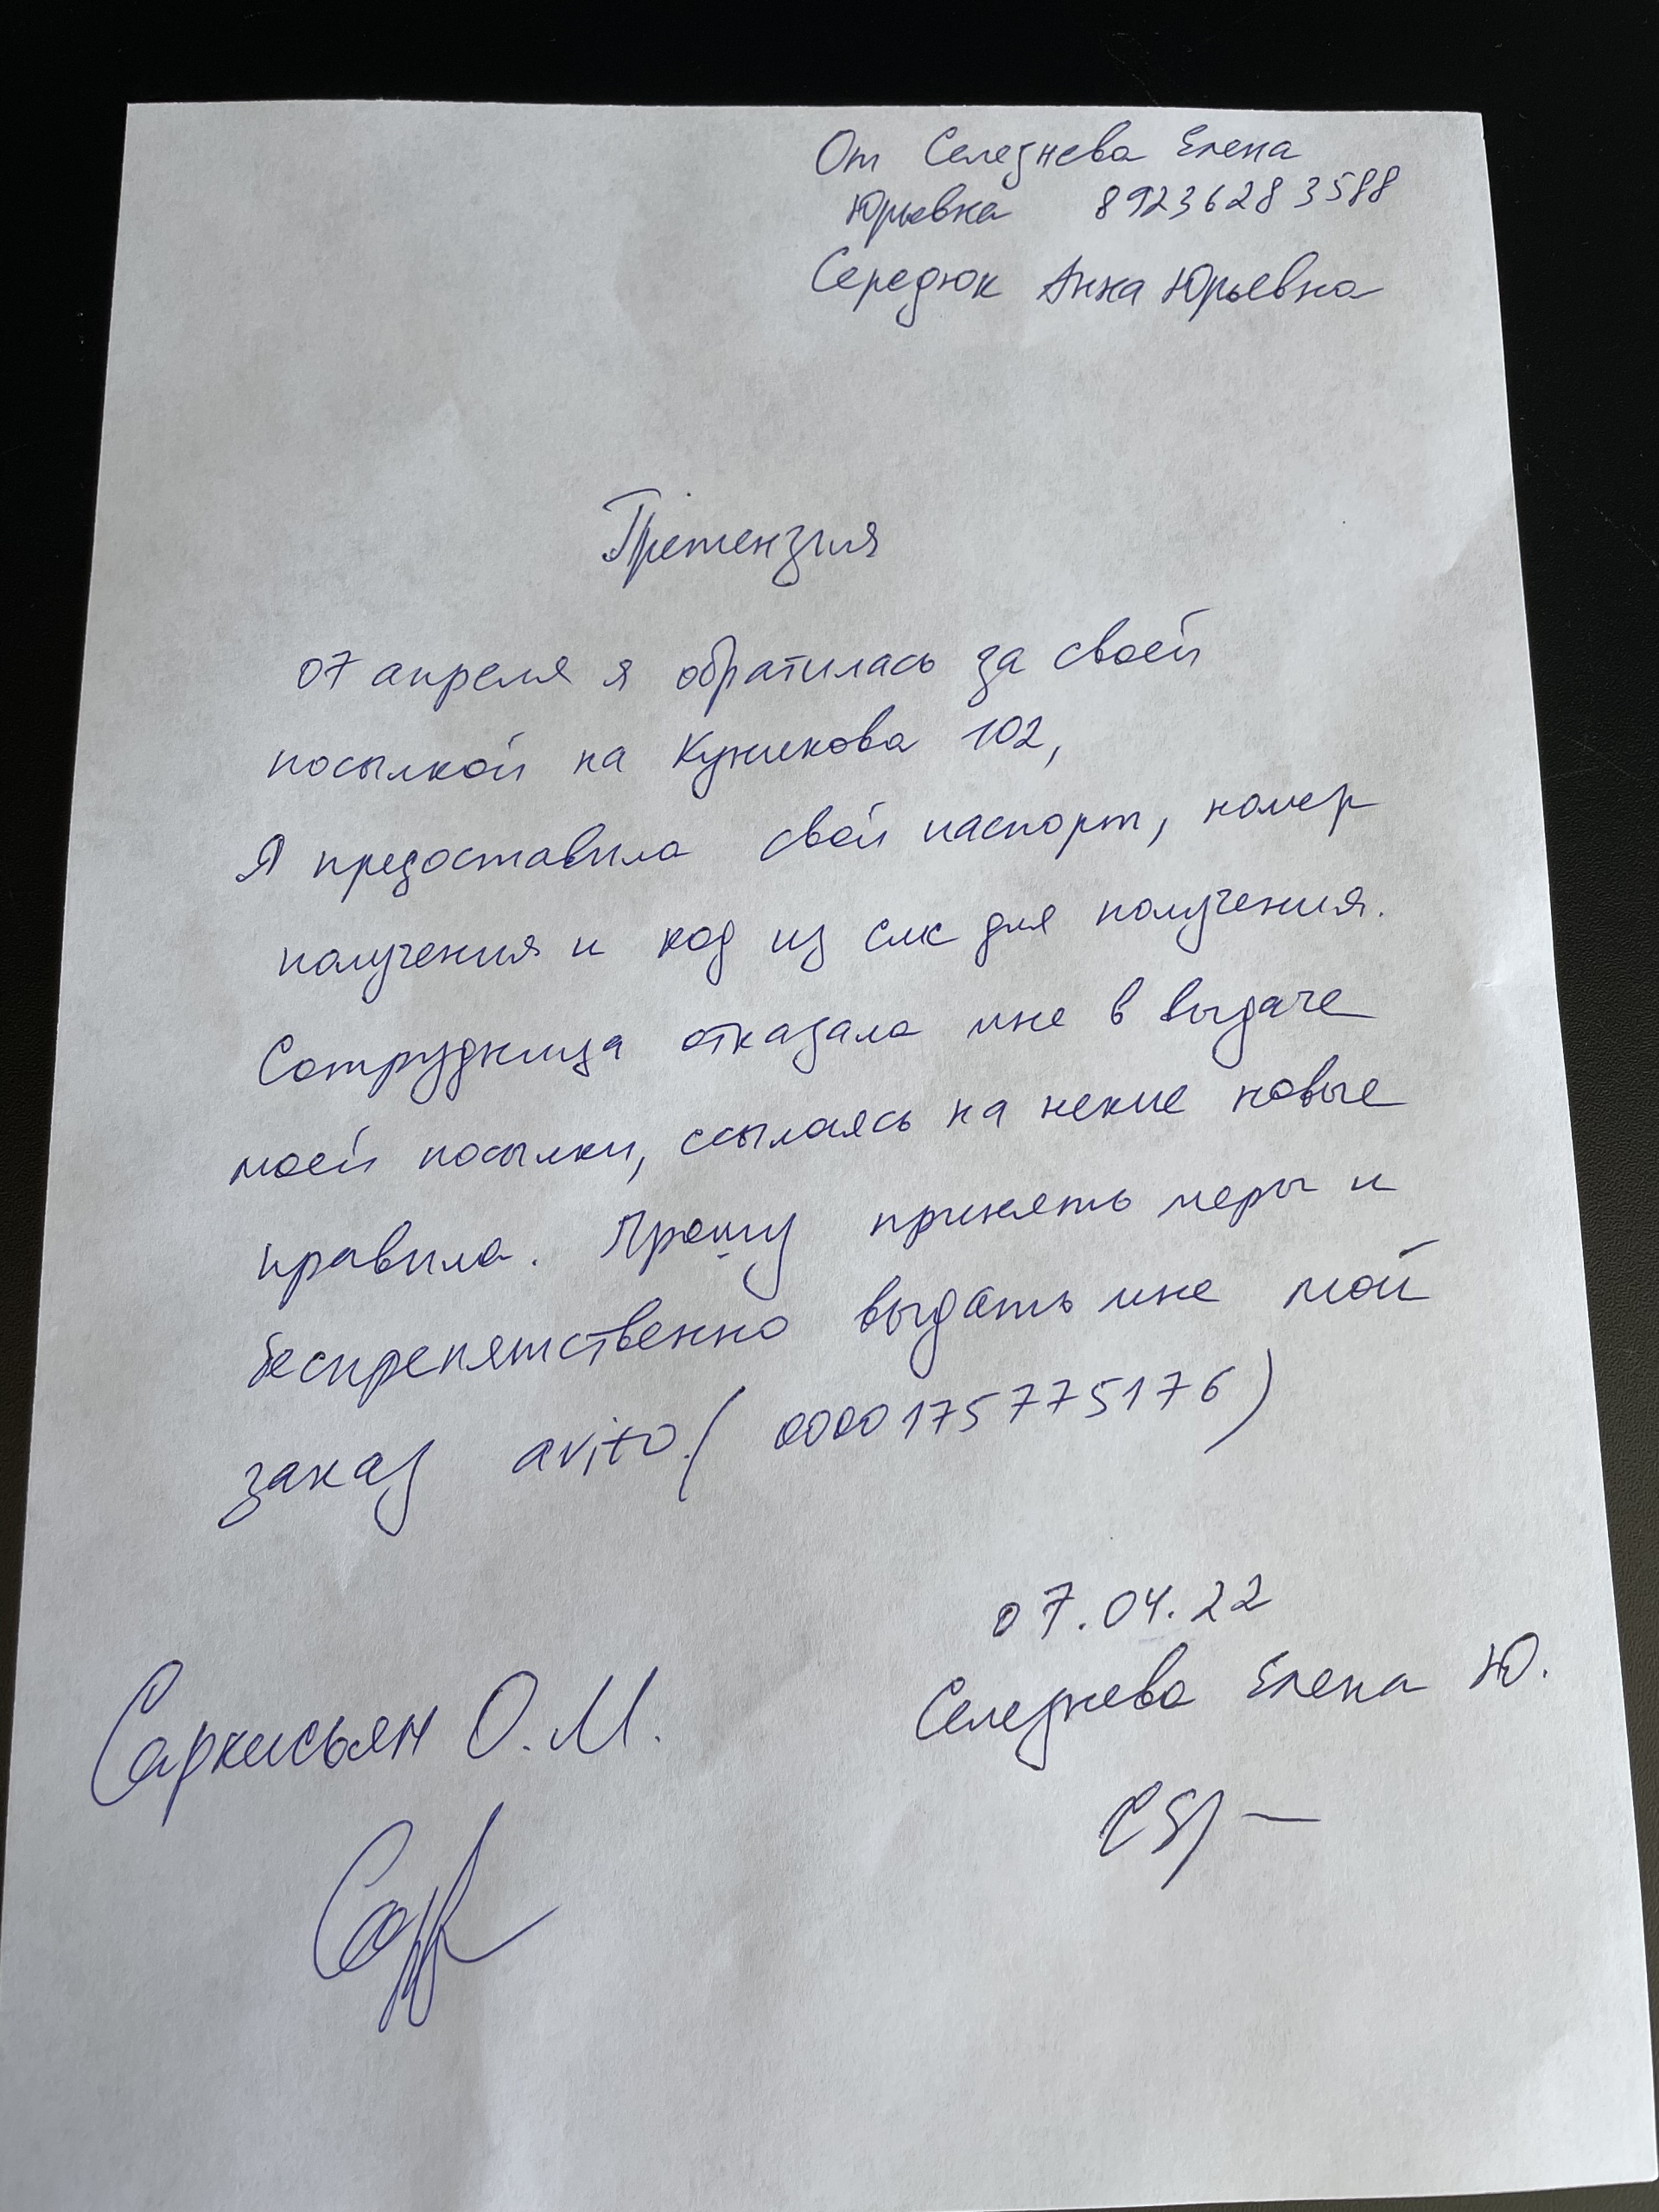 От Селезнева Елена
Юрьевна 89236283588
Середюк Анна Юрьевна
Претензия
07 апреля я обратилась за своей
посылкой на Куникова 102,
Я предоставила свой паспорт, номер
получения и код из смс для получения.
Сотрудница отказала мне в выдаче
моей посылки, ссылаясь на некие новые
правила. Прошу принять меры и
беспрепятственно выдать мне мой
заказ avito. (0000175775176)
07.04.22
Саркисьян О.М.
Селезнева Елена Ю.